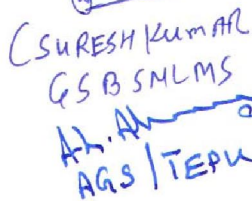 (SURESH KUMAR
GSBSNLMS
AGS/TEPU